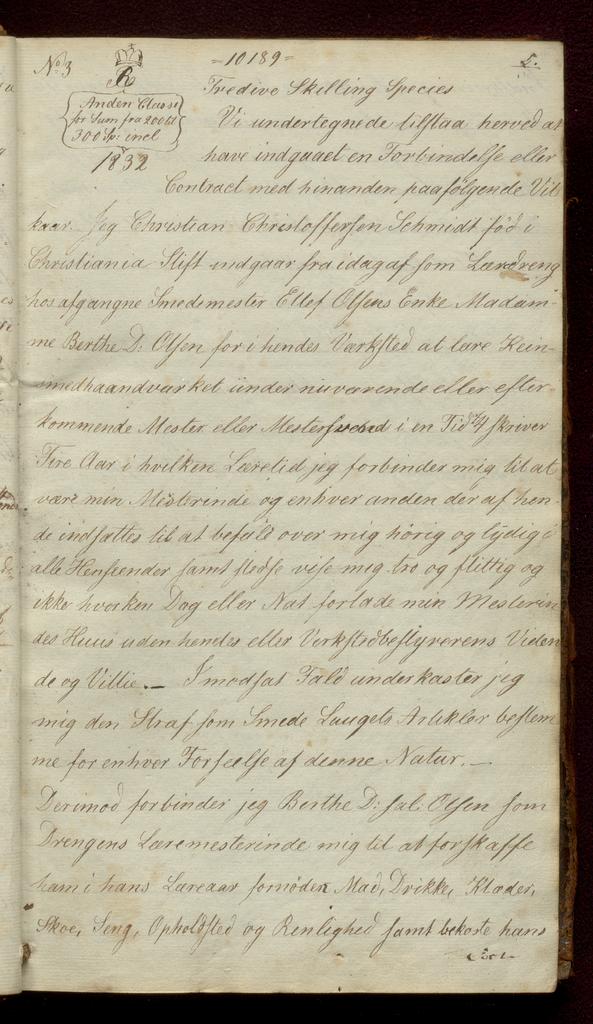 No 3 =10189= 5.
R
Anden Classe
for Sum fra 200 til
300 Sp: incl
1832
Tredive Skilling Species
Vi undertegnede tilstaa herved at
have indgaaet en Forbindelse eller
Contract med hinanden paafölgende Vil
kaar. Jeg Christian Christoffersen Schmidt föd i
Christiania Stift indgaar fra idag af som Læredreng
hos afgangne Smedemester Ellef Olsens Enke Madam-
me Berthe D: Olsen for i hendes Værksted at lære Klein-
smedhaandværket under nuværende eller efter-
kommende Mester eller Mestersvend i en Tid 4 skriver
Fire Aar i hvilken Læretid jeg forbinder mig til at
være min Mesterinde og enhver anden der af hen-
de indsættes til at befale over mig hörig og lydig i
alle Henseender samt stedse vise mig tro og flittig og
ikke hverken Dag eller Nat forlade min Mesterin
des Huus uden hendes eller Verkstedbestyrerens Viden
de og Villie. — I modsat Fald underkaster jeg
mig den Straf som Smede Laugets Artikler bestem
me for enhver Forseelse af denne Natur. —
Derimod forbinder jeg Berthe D: sal: Olsen som
Drengens Læremesterinde mig til at forskaffe
ham i hans Læreaar fornöden Mad, Drikke, Klæder,
Skoe, Seng, Opholdsted og Renlighed samt bekoste hans